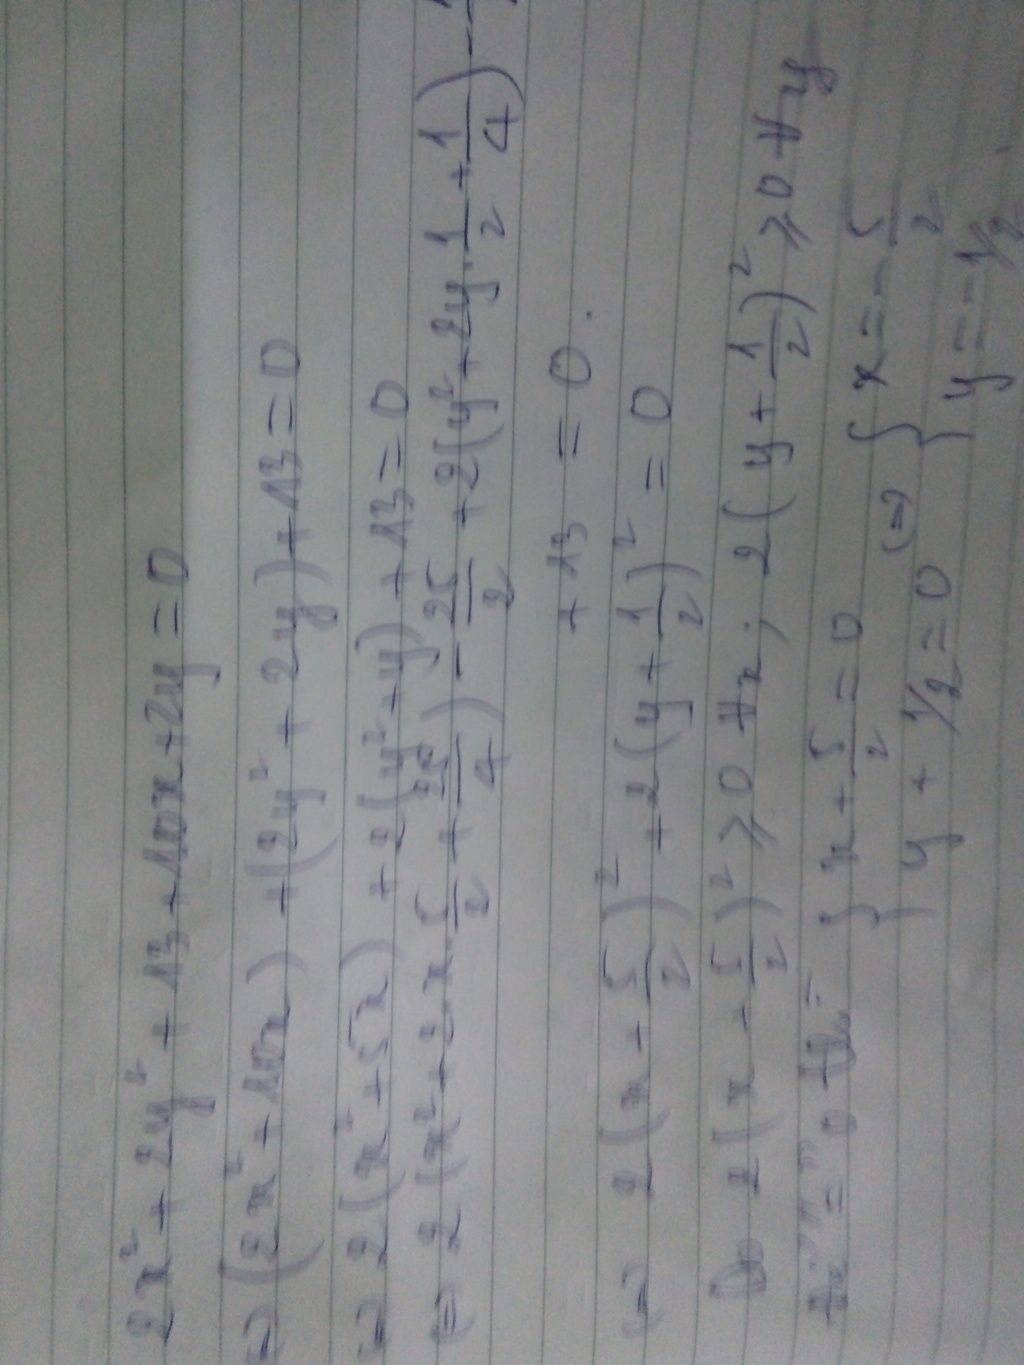 2x² + 2y² + 13 + 10x + 2y = 0
⇔ (2x² + 10x) + (2y² + 2y) + 13 = 0
⇔ 2(x² + 5x) + 2(y² + y) + 13 = 0
⇔ 2(x² + 2x·5/2 + 25/4) - 25/2 + 2(y² + 2y·1/2 + 1/4) - 1
+ 13 = 0.
⇔ 2(x + 5/2)² + 2(y + 1/2)² = 0
Do 2(x + 5/2)² ≥ 0 ∀x; 2(y + 1/2)² ≥ 0 ∀y
"=" { x + 5/2 = 0 ⇔ { x = -5/2
y + 1/2 = 0 y = -1/2.